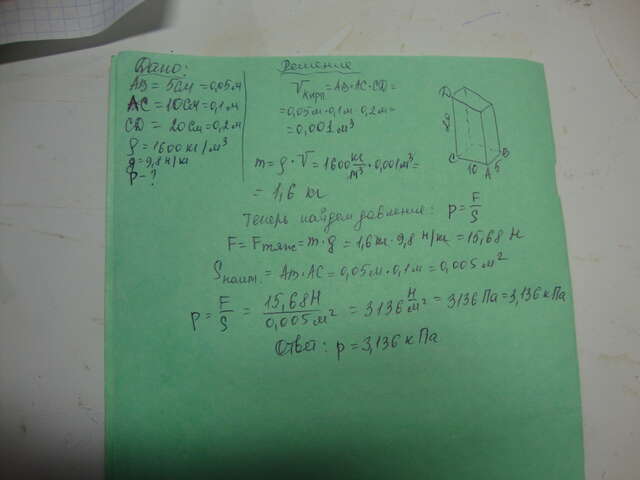 Дано:
AB = 5см = 0,05м
AC = 10см = 0,1м
CD = 20см = 0,2м
ρ = 1600 кг/м³
g = 9,8 н/кг
p - ?
Решение
Vкирп. = AB·AC·CD =
= 0,05м·0,1м·0,2м =
= 0,001м³
m = ρ·V = 1600 кг/м³ · 0,001м³ =
= 1,6 кг
D
C
10
A
5
B
Теперь найдем давление: p = F/S
F = Fтяж = m·g = 1,6 кг·9,8 н/кг = 15,68 Н
Sнаим. = AB·AC = 0,05м·0,1м = 0,005м²
p = F/S = 15,68Н/0,005м² = 3136 Н/м² = 3136 Па = 3,136 кПа
Ответ: p = 3,136 кПа